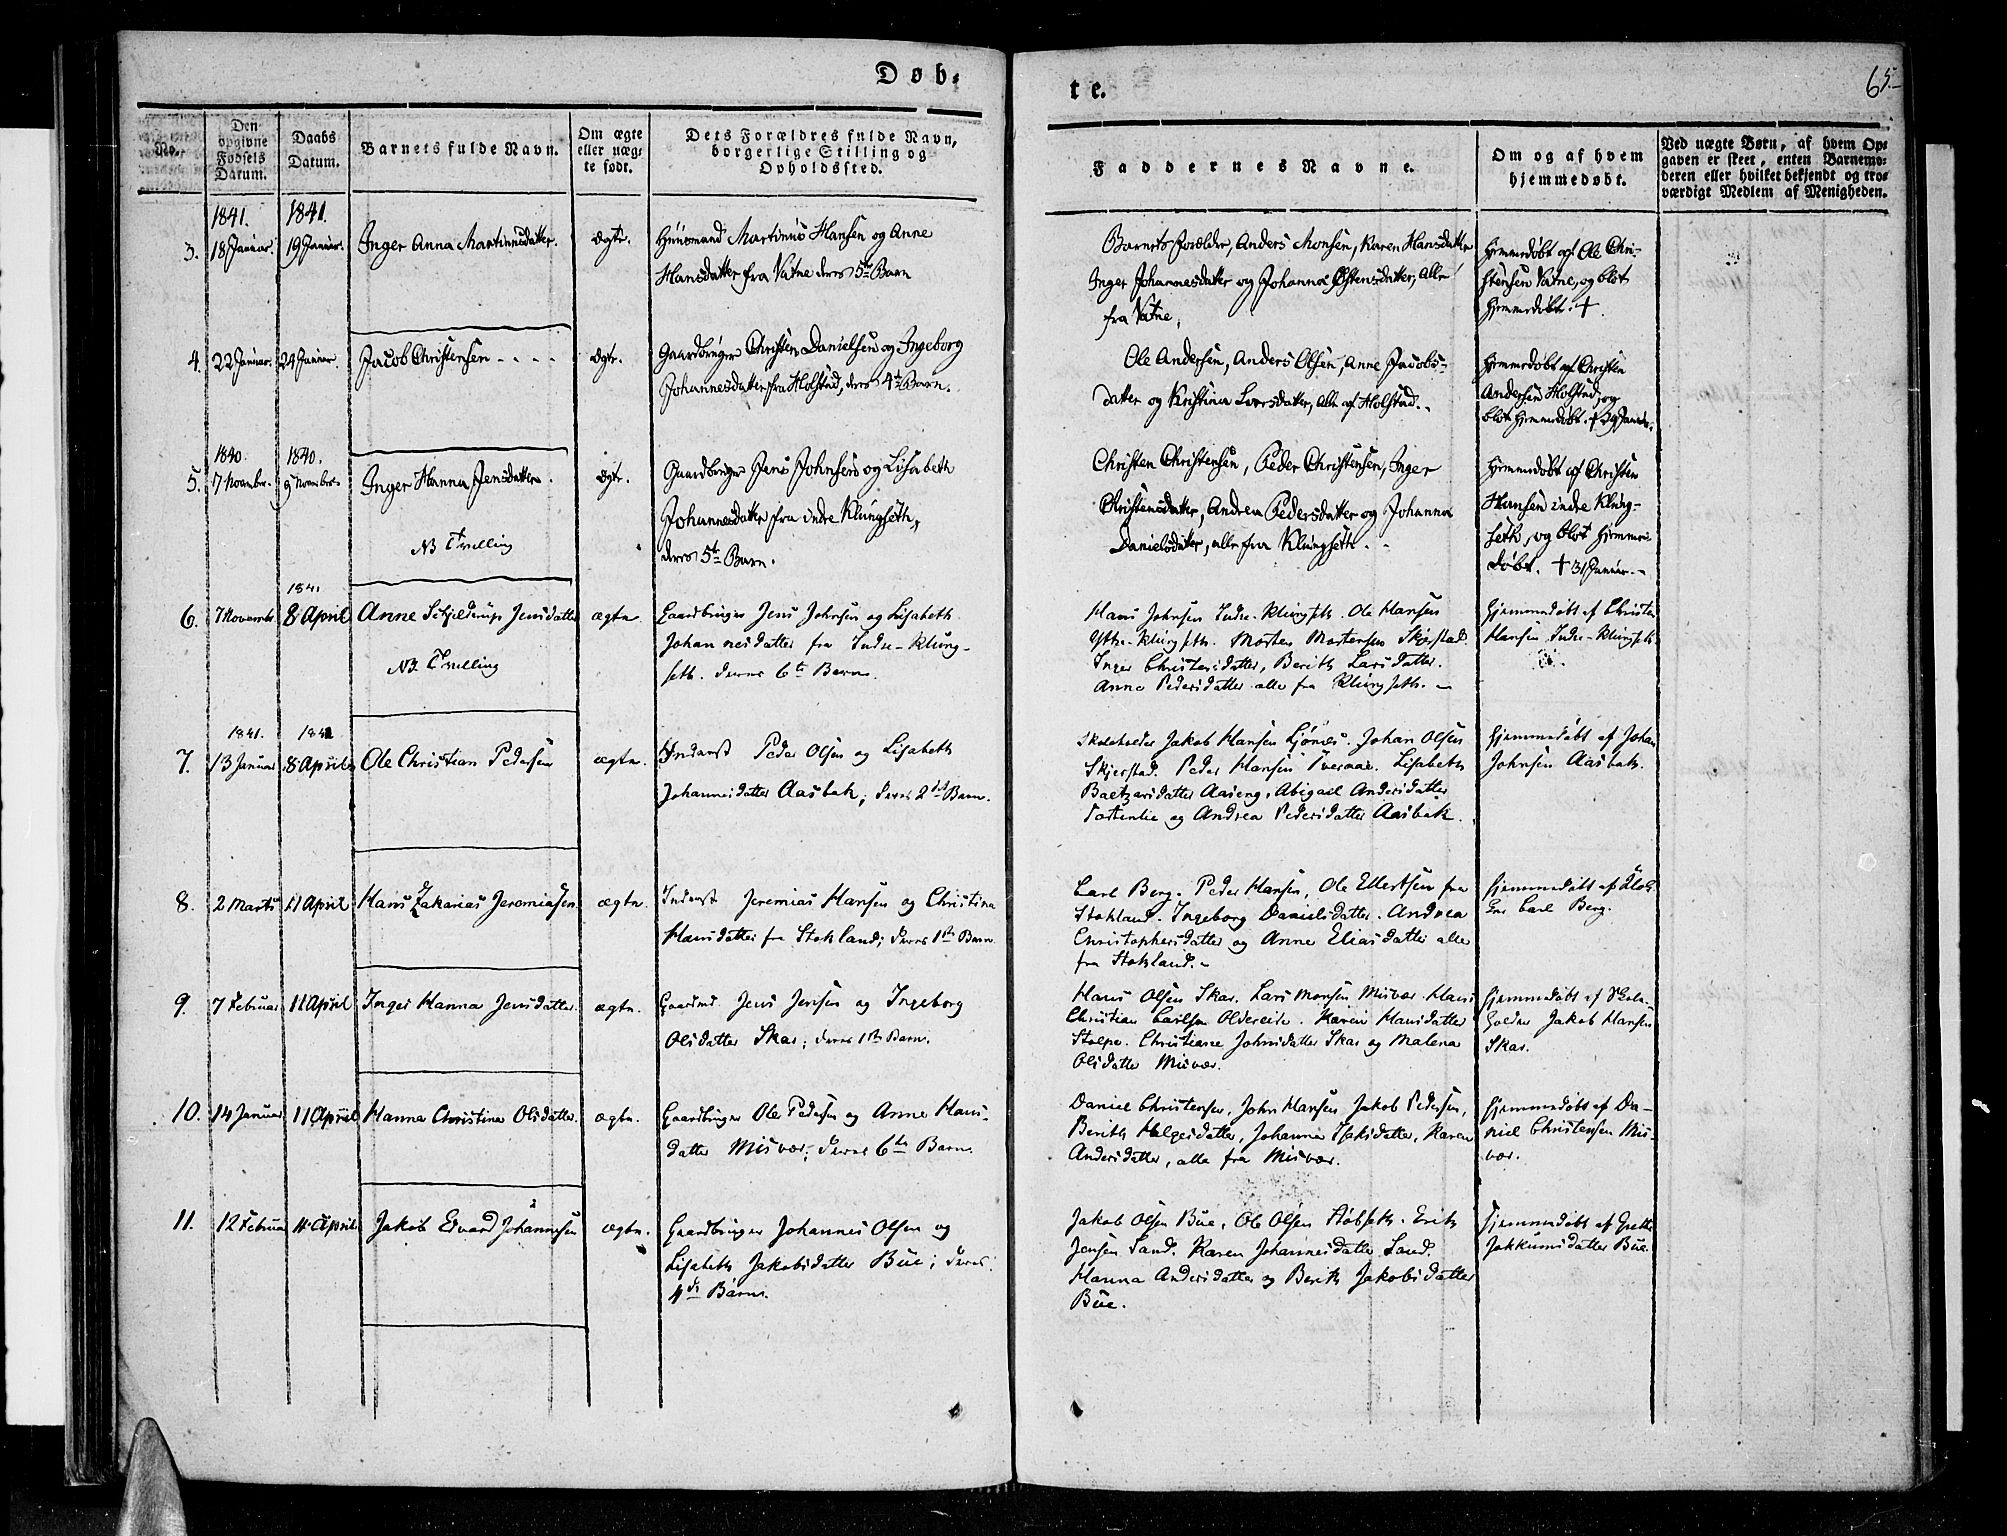 Døb-
te.
65.
No.
Den opgivne Fødsels Datum.
Daabs Datum.
Barnets fulde Navn.
Om ægte eller uæg-
te født.
Dets Forældres fulde Navn,
borgerlige Stilling og
Opholdssted.
Faddernes Navne.
Om og af hvem
hjemmedøbt.
Ved uægte Børn, af hvem Op-
gaven er skeet, enten Barnemo-
deren eller hvilket bekjendt og tro-
værdigt Medlem af Menigheden.
1841. 1841.
3. 18 Januar. 19 Januar. Inger Anna Martinusdatter. ægte.
Huusmand Martinus Hansen og Anne
Hansdatter fra Vatne deres 5te Barn
Barnets Forælder, Anders Monsen, Karen Hansdatter
Inger Johannesdatter og Johanna Østensdatter, alle
fra Vatne,
Hjemmedøbt af Ole Chri-
stensen Vatne, og blot
Hjemmedøbt. +.
4. 22 Januar. 24 Januar. Jacob Christensen - - - - ægte.
Gaardbruger Christen Danielsen og Ingeborg
Johannesdatter fra Holstad, deres 4te Barn.
Ole Andersen, Anders Olsen, Anne Jacobs-
datter og Kristina Iversdatter, alle af Holstad. -
Hjemmedøbt af Christen
Andersen Holstad, og
blot Hjemmedøbt. + 29 Januar.
1840. 1840.
5. 7 Novembr. 9 Novembr. Inger Hanna Jensdatter. ægte.
NB Tvilling
Gaardbruger Jens Johnsen og Lisabeth
Johannesdatter fra indre Klungseth,
deres 5te Barn.
Christen Christensen, Peder Christensen, Inger
Christensdatter, Andrea Pedersdatter og Johanna
Danielsdatter, alle fra Klungseth. -
Hjemmedøbt af Christen
Hansen indre Klung-
seth, og blot Hjemme-
døbt. + 31 Januar. -
1841
6. 7 Novembr 8 April Anne Schjelderup Jensdatter ægte.
NB Tvilling
Gaardbruger Jens Johnsen og Lisabeth
Johannesdatter fra Indre-Klung-
seth. deres 6te Barn.
Hans Johnsen Indre-Klungseth. Ole Hansen
Yttre-Klungseth. Morten Mortensen Skjerstad
Inger Christensdatter, Berith Larsdatter.
Anne Pedersdatter alle fra Klungseth. -
Hjemmedøbt af Christen
Hansen Indre-Klungseth
1841. 1841
7. 13 Januar 8 April Ole Christian Pedersen ægte.
Inderst Peder Olsen og Lisabeth
Johannesdatter Aasbak; deres 2det Barn.
Skoleholder Jakob Hansen Ljønes. Johan Olsen
Skjerstad. Peder Hansen Tveraae. Lisabeth
Baltzersdatter Aaseng, Abigael Andersdatter
og Andrea Pedersdatter Aasbak.
Hjemmedøbt af Johan
Johnsen Aasbak.
8. 2 Marts 11 April Hans Zakarias Jeremiasen ægte.
Inderst Jeremias Hansen og Christina
Hansdatter fra Stokland; deres 1ste Barn.
Carl Berg. Peder Hansen, Ole Ellertsen fra
Stokland. Ingeborg Danielsdatter. Andrea
Christophersdatter og Anne Eliasdatter alle
fra Stokland. -
Hjemmedøbt af Klok-
ker Carl Berg.
9. 7 Februar 11 April Inger Hanna Jensdatter. ægte.
Gaardmd. Jens Jensen og Ingeborg
Olsdatter Skar; deres 1ste Barn.
Hans Olsen Skar. Lars Monsen Misvær. Hans
Christian Carlsen Oldereide. Karen Hansdatter
Stolpe. Christiane Johnsdatter Skar og Malena
Olsdatter Misvær.
Hjemmedøbt af Skole-
holder Jakob Hansen
Skar.
10. 14 Januar 11 April Hanna Christina Olsdatter. ægte.
Gaardbruger Ole Pedersen og Anne Hans-
datter Misvær; deres 6te Barn.
Daniel Christensen, John Hansen Jakob Pedersen,
Berith Helgesdatter, Johanna Isaksdatter, Karen
Andersdatter, alle fra Misvær.
Hjemmedøbt af Da-
niel Christensen Mis-
vær.
11. 12 Februar 11 April Jakob Edvard Johannesen ægte.
Gaardbruger Johannes Olsen og
Lisabeth Jakobsdatter Bue; deres
4de Barn.
Jakob Olsen Bue, Ole Olsen Støbseth. Erik
Jensen Sand. Karen Johannesdatter Sand.
Hanna Andersdatter og Berith Jakobsdatter
Bue.
Hjemmedøbt af Grethe
Jokkumsdatter Bue